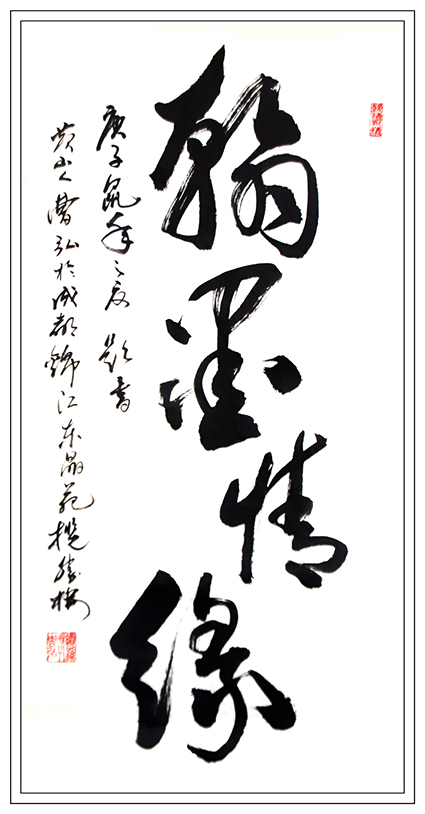 翰墨情缘
庚子鼠年之夏 题书
黄山人曹弘於成都锦江东晶苑揽胜楼